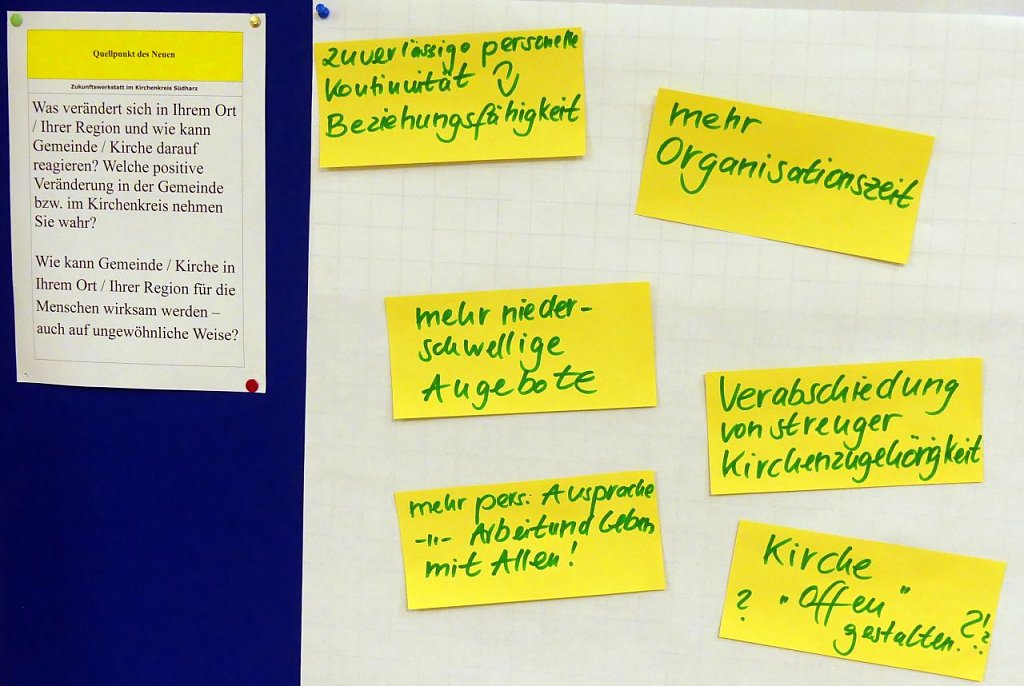 Quellpunkt des Neuen
Zukunftswerkstatt im Kirchenkreis Südharz
Was verändert sich in Ihrem Ort
/ Ihrer Region und wie kann
Gemeinde / Kirche darauf
reagieren? Welche positive
Veränderung in der Gemeinde
bzw. im Kirchenkreis nehmen
Sie wahr?
Wie kann Gemeinde / Kirche in
Ihrem Ort / Ihrer Region für die
Menschen wirksam werden –
auch auf ungewöhnliche Weise?
zuverlässige personelle
Kontinuität
Beziehungsfähigkeit
mehr
Organisationszeit
mehr nieder-
schwellige
Angebote
Verabschiedung
von strenger
Kirchenzugehörigkeit
mehr pers. Ansprache
-"- Arbeit und Leben
mit Allen!
Kirche
? "Offen"
gestalten. ?!?